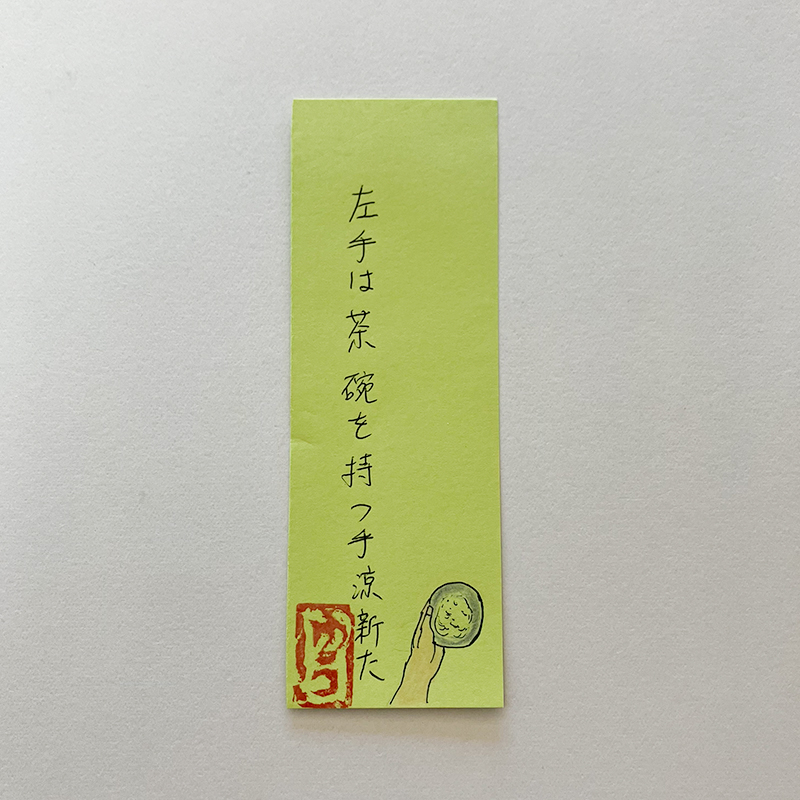 左手は茶碗を持つ手涼新た